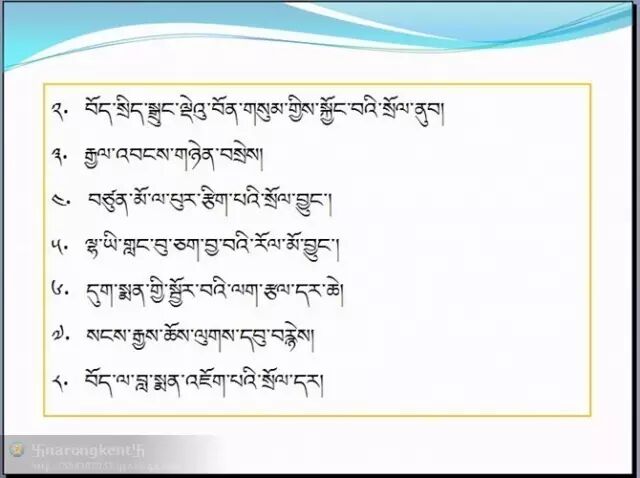 ༢. བོད་སྲིད་སྒྲུང་ལྡེའུ་བོན་གསུམ་གྱིས་སྐྱོང་བའི་སྲོལ་ནུབ།
༣. རྒྱལ་འབངས་གཉེན་བསྲེས།
༤. བཙུན་མོ་ལ་པུར་རྩིག་པའི་སྲོལ་བྱུང་།
༥. ལྷ་ཡི་གླང་བུ་ཅག་བྱ་བའི་རོལ་མོ་བྱུང་།
༦. དུག་སྨན་གྱི་སྦྱོར་བའི་ལག་རྩལ་དར་ཆེ།
༧. སངས་རྒྱས་ཆོས་ལུགས་དབུ་བརྙེས།
༨. བོད་ལ་བླ་སྨན་འཇོག་པའི་སྲོལ་དར།
卐narongkent卐